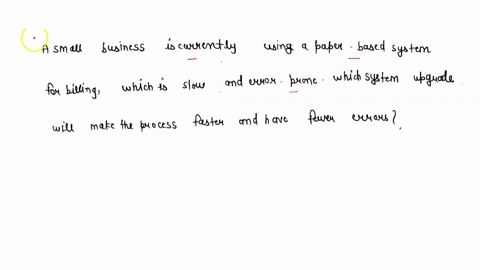 A small business is currently using a paper-based system
for billing, which is slow and error-prone. which system upgrade
will make the process faster and have fewer errors?